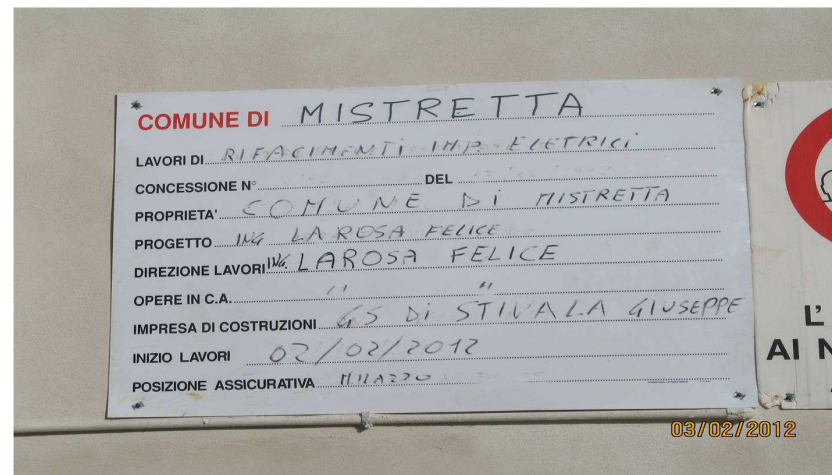 COMUNE DI MISTRETTA
LAVORI DI RIFACIMENTI IMP. ELETRICI
CONCESSIONE N° DEL
PROPRIETA' COMUNE DI MISTRETTA
PROGETTO ING LA ROSA FELICE
DIREZIONE LAVORI ING. LAROSA FELICE
OPERE IN C.A. " "
IMPRESA DI COSTRUZIONI GS Di STIVALA GIUSEPPE
INIZIO LAVORI 02/02/2012
POSIZIONE ASSICURATIVA MILAZZO
L'
AI N
03/02/2012